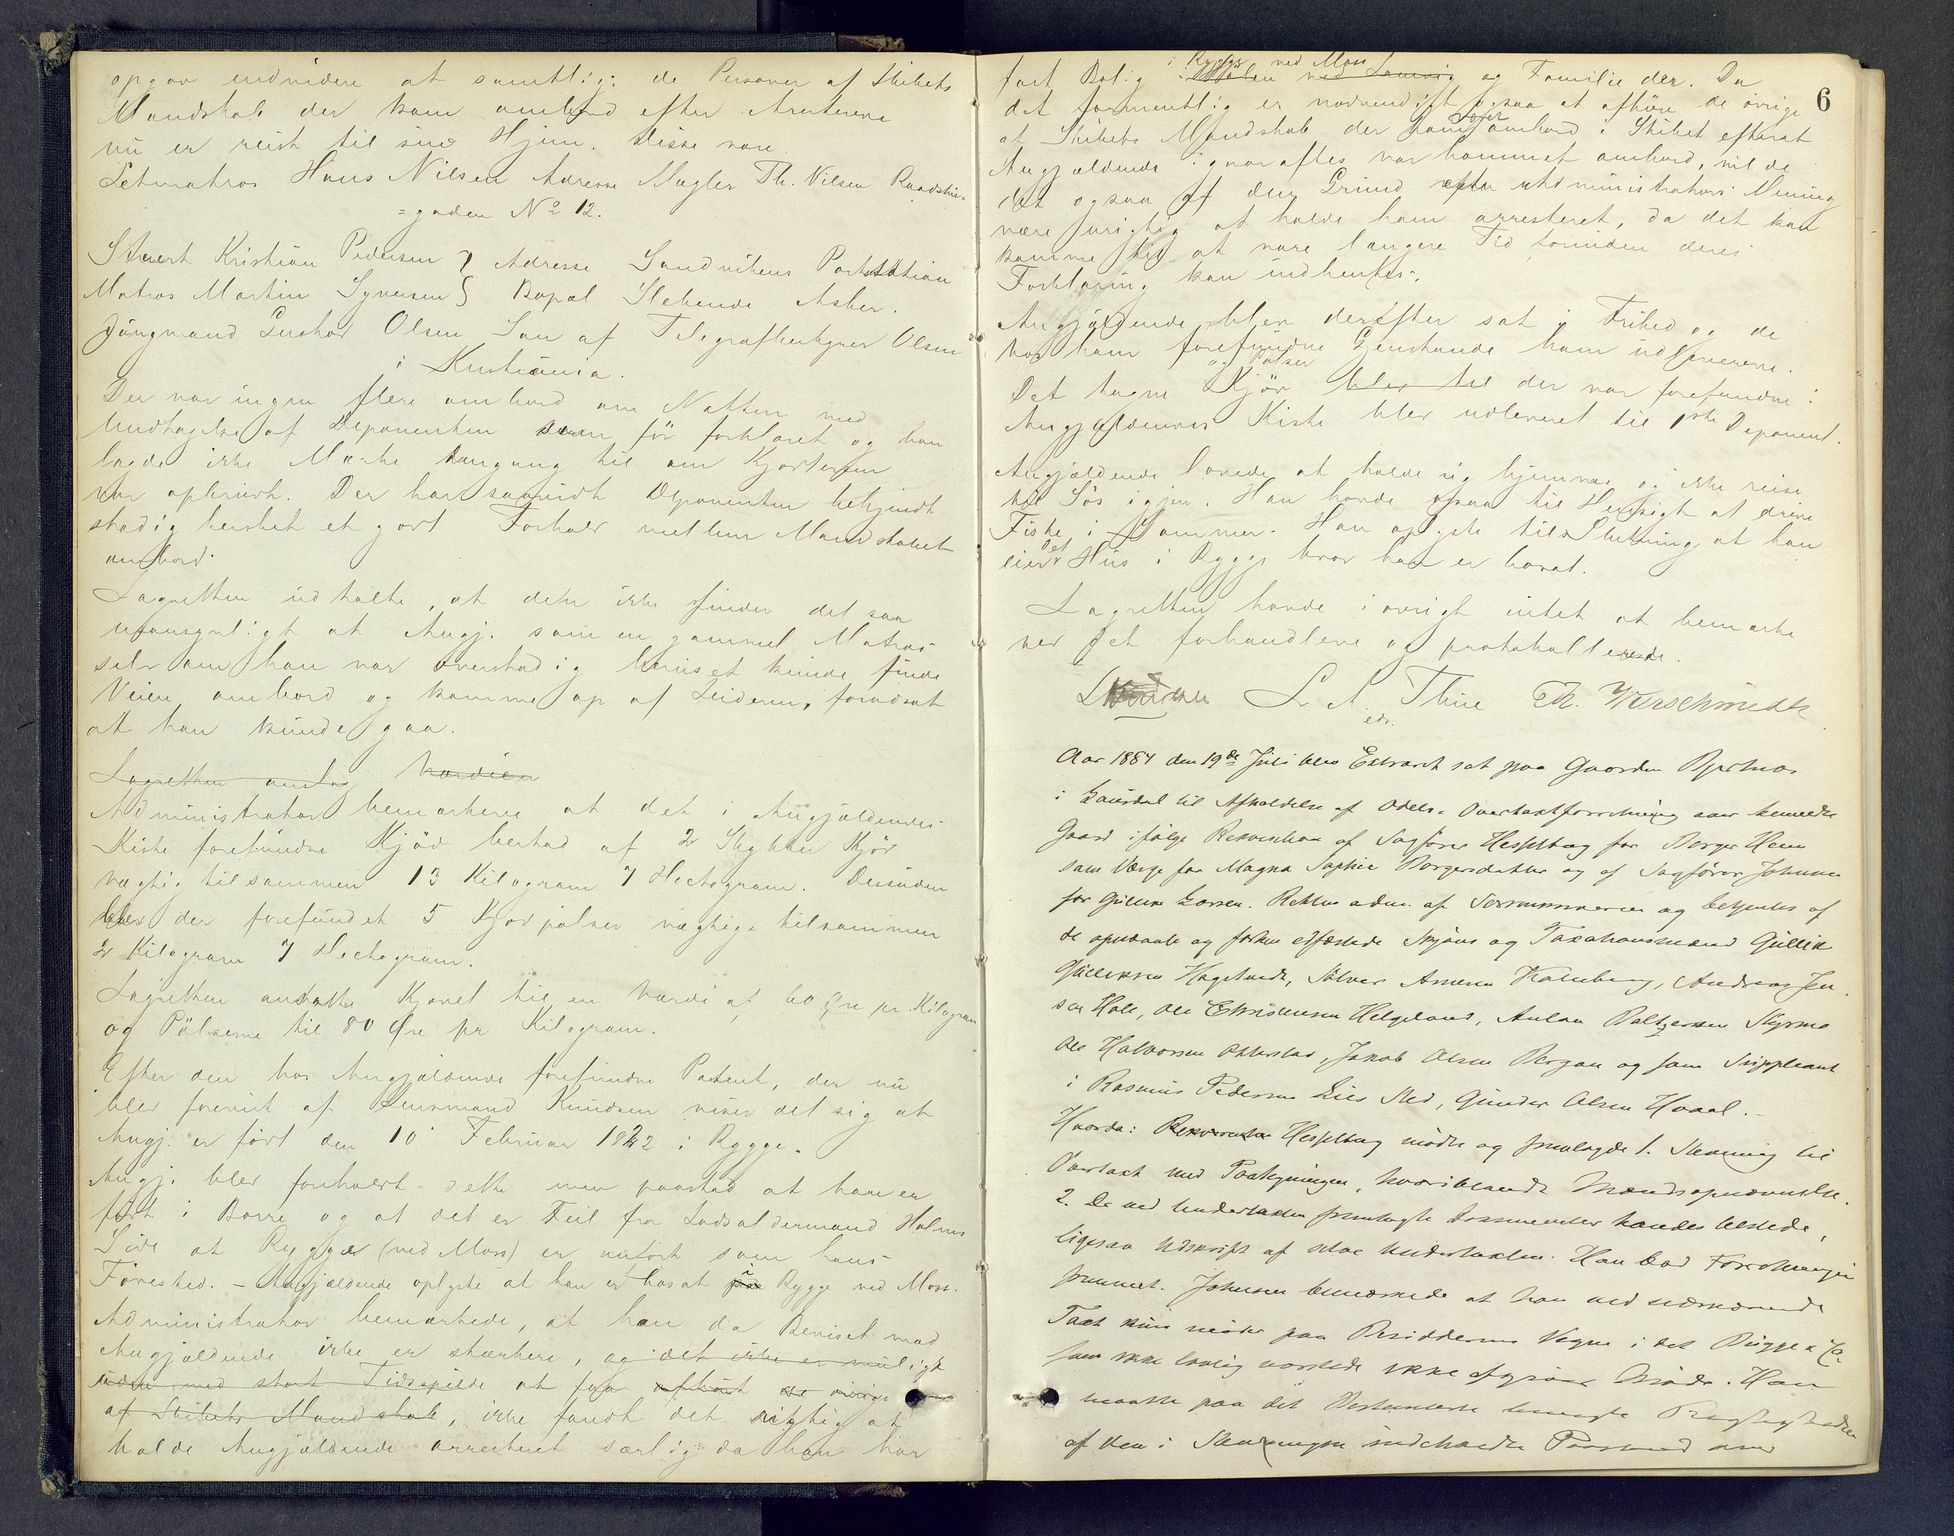 opgav endvidere at samtlige de Personer af Skibets
Mandskab der kom ombord efter Arrestens
nu er reist til sine Hjem. Disse vare
Letmatros Hans Nilsen Adresse Mægler Th. Nilsen Raadstu-
=gaden No 12.
Stuert Kristian Pedersen } Adresse Sandvikens Poststation
Matros Martin Syversen } Bopæl Slebende Asker.
Jungmand Gustav Olsen Søn af Telegrafbestyrer Olsen
i Kristiania.
Der var ingen flere ombord om Natten med
Undtagelse af Deponenten som før forklaret og han
lagde ikke Mærke engang til om
var opbrudt. Der har saavidt Deponenten bekjendt
stadig hersket et godt Forhold mellem Mandskabet
ombord.
Lagretten udtalte, at den ikke finder det saa
usansynligt at Angj. som en gammel Matros
selv om han var overstadig beruset kunde finde
Veien ombord og komme op af Leideren, forudsat
at han kunde gaa.
Lagretten antog Værdien
Administrator bemærkede at det i Angjældendes
Kiste forefundne Kjød bestod af 2 Stykker Kjød
vægtig tilsammen 13 Kilogram 7 Hectogram. Desuden
blev der forefundet 5 Kjødpølser vægtige tilsammen
2 Kilogram 7 Hectogram.
Lagretten ansatte Kjødet til en Værdi af 60 Øre pr. Kilogram
og Pølserne til 80 Øre pr Kilogram.
Efter den hos Angjældende forefundne Patent, der nu
blev forevist af Lensmand Knudsen viser det sig at
Angj. er født den 10 Februar 1822 i Rygge.
Angj. blev foreholdt dette men paastod at han er
født i Borre og at det er Feil fra Lodsoldermand Holms
Side at Rygge (ved Moss) er anført som hans
Fødested. – Angjældende oplyste at han er bosat i Rygge ved Moss.
Administrator bemærkede, at han da Beviset mod
Angjældende ikke er stærkere, og det ikke er muligt
uden med stort Tidsspilde at faa afhørt de øvrige
af Skibets Mandskab, ikke fandt det rigtig at
holde Angjældende arresteret særlig da han har
6
i Rygge ved Moss
fast Bolig ved Larvig og Familie der. Da
det formentlig er nødvendigt ogsaa at afhøre de øvrige
af Skibets Mandskab der kom ombord i Skibet efterat
Angjældende igaaraftes var kommet ombord, vil de
det ogsaa af den Grund efter Administrators Mening
være urigtig at holde ham arresteret, da det kan
komme til at vare længere Tid forinden deres
Forklaring kan indhentes.
Angjældende blev derefter sat i Frihed og de
hos ham forefundne Gjenstande ham udleverede.
og Pølser
Det tagne Kjød blev til der var forefundne i
Angjældendes Kiste blev udleveret til 1ste Deponent.
Angjældende lovede at holde sig hjemme og ikke reise
til Søs igjen. Han havde ogsaa til Hensigt at drive
Fiske i Sommer. Han oplyste tilslutning at han
eier et Hus i Rygge hvor han er bosat.
Lagretten havde iøvrigt intet at bemærke
ved det forhandlede og protokollerede.
L. A. Thue Th.
edv.
Aar 1884 den 19de Juli blev Extraret sat paa Gaarden Bjertnæs
i Sandsdal til Afholdelse af Odels- Overtaxtforretning over bemeldte
Gaard ifølge Rekvisition af Sagfører Hesselberg for Borger Hem
som Værge for Magna Sophie Borgersdatter og af Sagfører Johnsen
for Gulline Larsen. Retten adm. af Sorenskriveren og betjentes af
de opnævnte og forhen edfæstede Skjøns og Taxationsmænd Gullik
Gulliksen Hagelund, Sølver Arnesen Kalleberg, Andreas Jen
sen Holt, Ole Christensen Helgeland, Anton Baltzersen Skyrmo
Ole Halvorsen Østerstad, Jakob Olsen Bergan og som Suppleant
i Rasmus Pedersen Lies Sted, Gunder Olsen Hvaal. –
Hvorda: Rekvirenten Hesselberg mødte og fremlagde 1. Stevning til
Overtaxt med Paategninger, hvoriblandt Mændsopnævnelse.
2. De ved Undertaxten fremlagte Dokumenter havdes tilstede,
ligesaa Udskrift af selve Undertaxten. Han bad Forretningen
fremmet. Johnsen bemærkede at han ved nærværende
Taxt kun møder paa Besidderens Vegne i det
som ikke lovlig varslede ikke afgiver Møde. Han
maatte paa det Bestemteste benegte Rigtigheden
af den i Stevningen indeholdte Paastand om